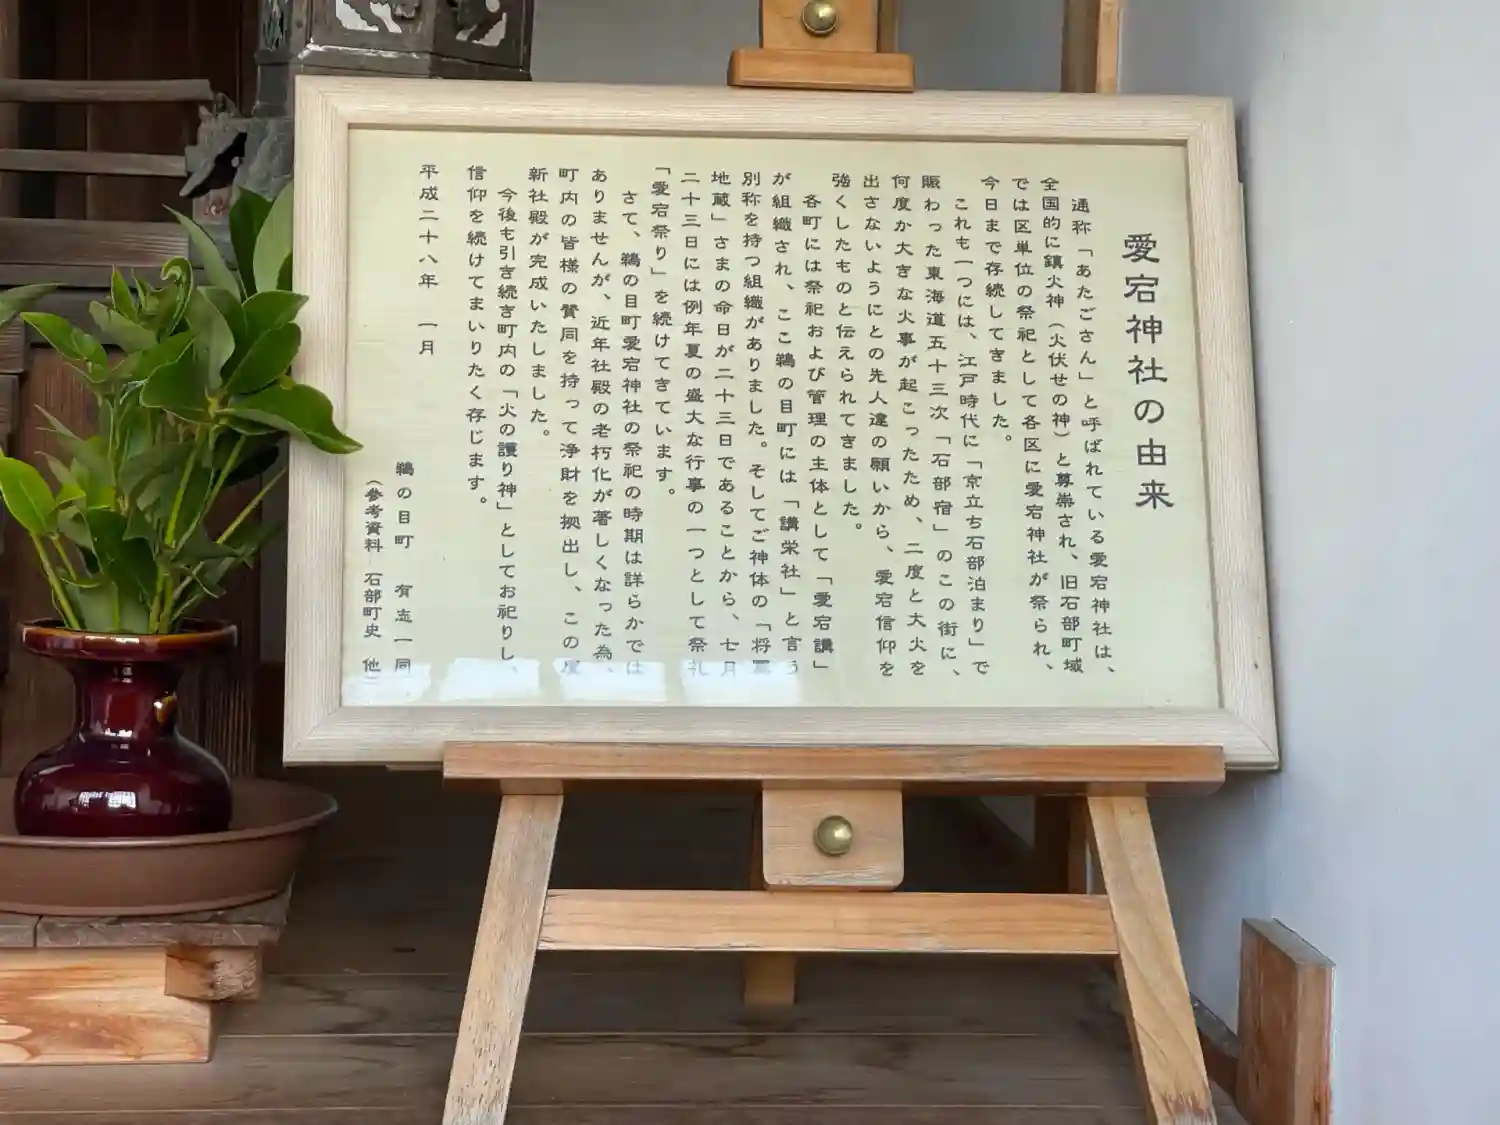 愛宕神社の由来
通称「あたごさん」と呼ばれている愛宕神社は、
全国的に鎮火神（火伏せの神）と尊崇され、旧石部町域
では区単位の祭祀として各区に愛宕神社が祭られ、
今日まで存続してきました。
これも一つには、江戸時代に「京立ち石部泊まり」で
賑わった東海道五十三次「石部宿」のこの街に、
何度か大きな火事が起こったため、二度と大火を
出さないようにとの先人達の願いから、愛宕信仰を
強くしたものと伝えられてきました。
各町には祭祀および管理の主体として「愛宕講」
が組織され、ここ鵜の目町には「講栄社」と言う
別称を持つ組織がありました。そしてご神体の「将軍
地蔵」さまの命日が二十三日であることから、七月
二十三日には例年夏の盛大な行事の一つとして祭礼
「愛宕祭り」を続けてきています。
さて、鵜の目町愛宕神社の祭祀の時期は詳らかでは
ありませんが、近年社殿の老朽化が著しくなった為、
町内の皆様の賛同を持って浄財を拠出し、この度
新社殿が完成いたしました。
今後も引き続き町内の「火の護り神」としてお祀りし、
信仰を続けてまいりたく存じます。
平成二十八年 一月
鵜の目町 有志一同
（参考資料 石部町史 他）